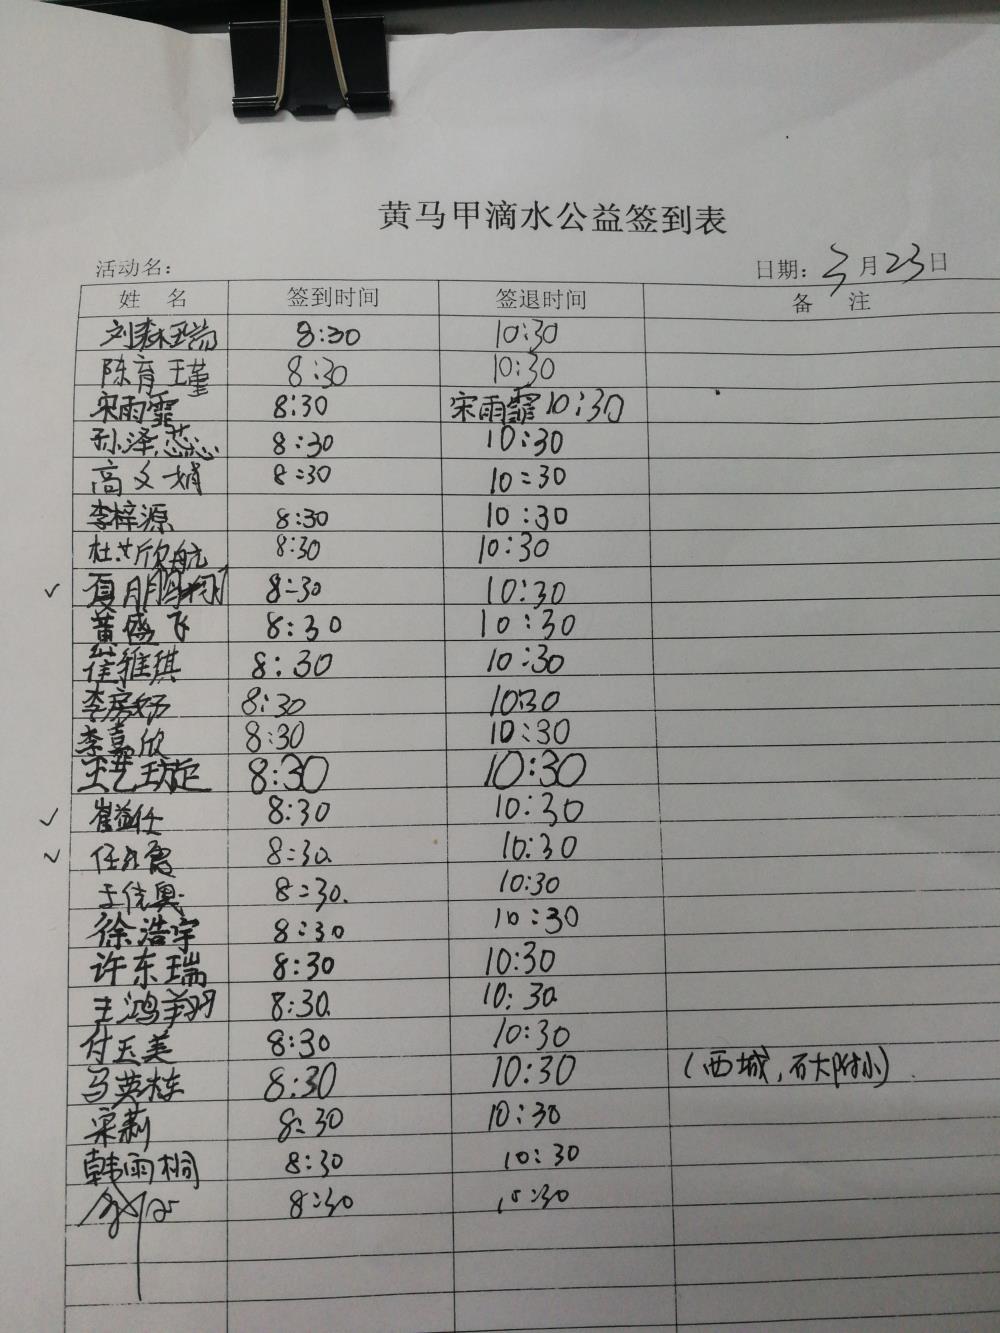 黄马甲滴水公益签到表
活动名： 日期：3月23日
姓 名 签到时间 签退时间 备 注
刘森瑞 8:30 10:30
陈育瑾 8:30 10:30
宋雨霏 8:30 宋雨霏 10:30
孙泽蕊 8:30 10:30
高文娟 8:30 10:30
李梓源 8:30 10:30
杜芯航 8:30 10:30
夏鹏翔 8:30 10:30
黄盛飞 8:30 10:30
徐雅琪 8:30 10:30
李房妤 8:30 10:30
李嘉欣 8:30 10:30
王艺璇 8:30 10:30
崔益仕 8:30 10:30
8:30 10:30
8:30. 10:30
徐浩宇 8:30 10:30
许东瑞 8:30 10:30
王鸿翔 8:30 10:30
付玉美 8:30 10:30
马英栋 8:30 10:30 (西城,石大附小)
宋莉 8:30 10:30
韩雨桐 8:30 10:30
8:30 10:30